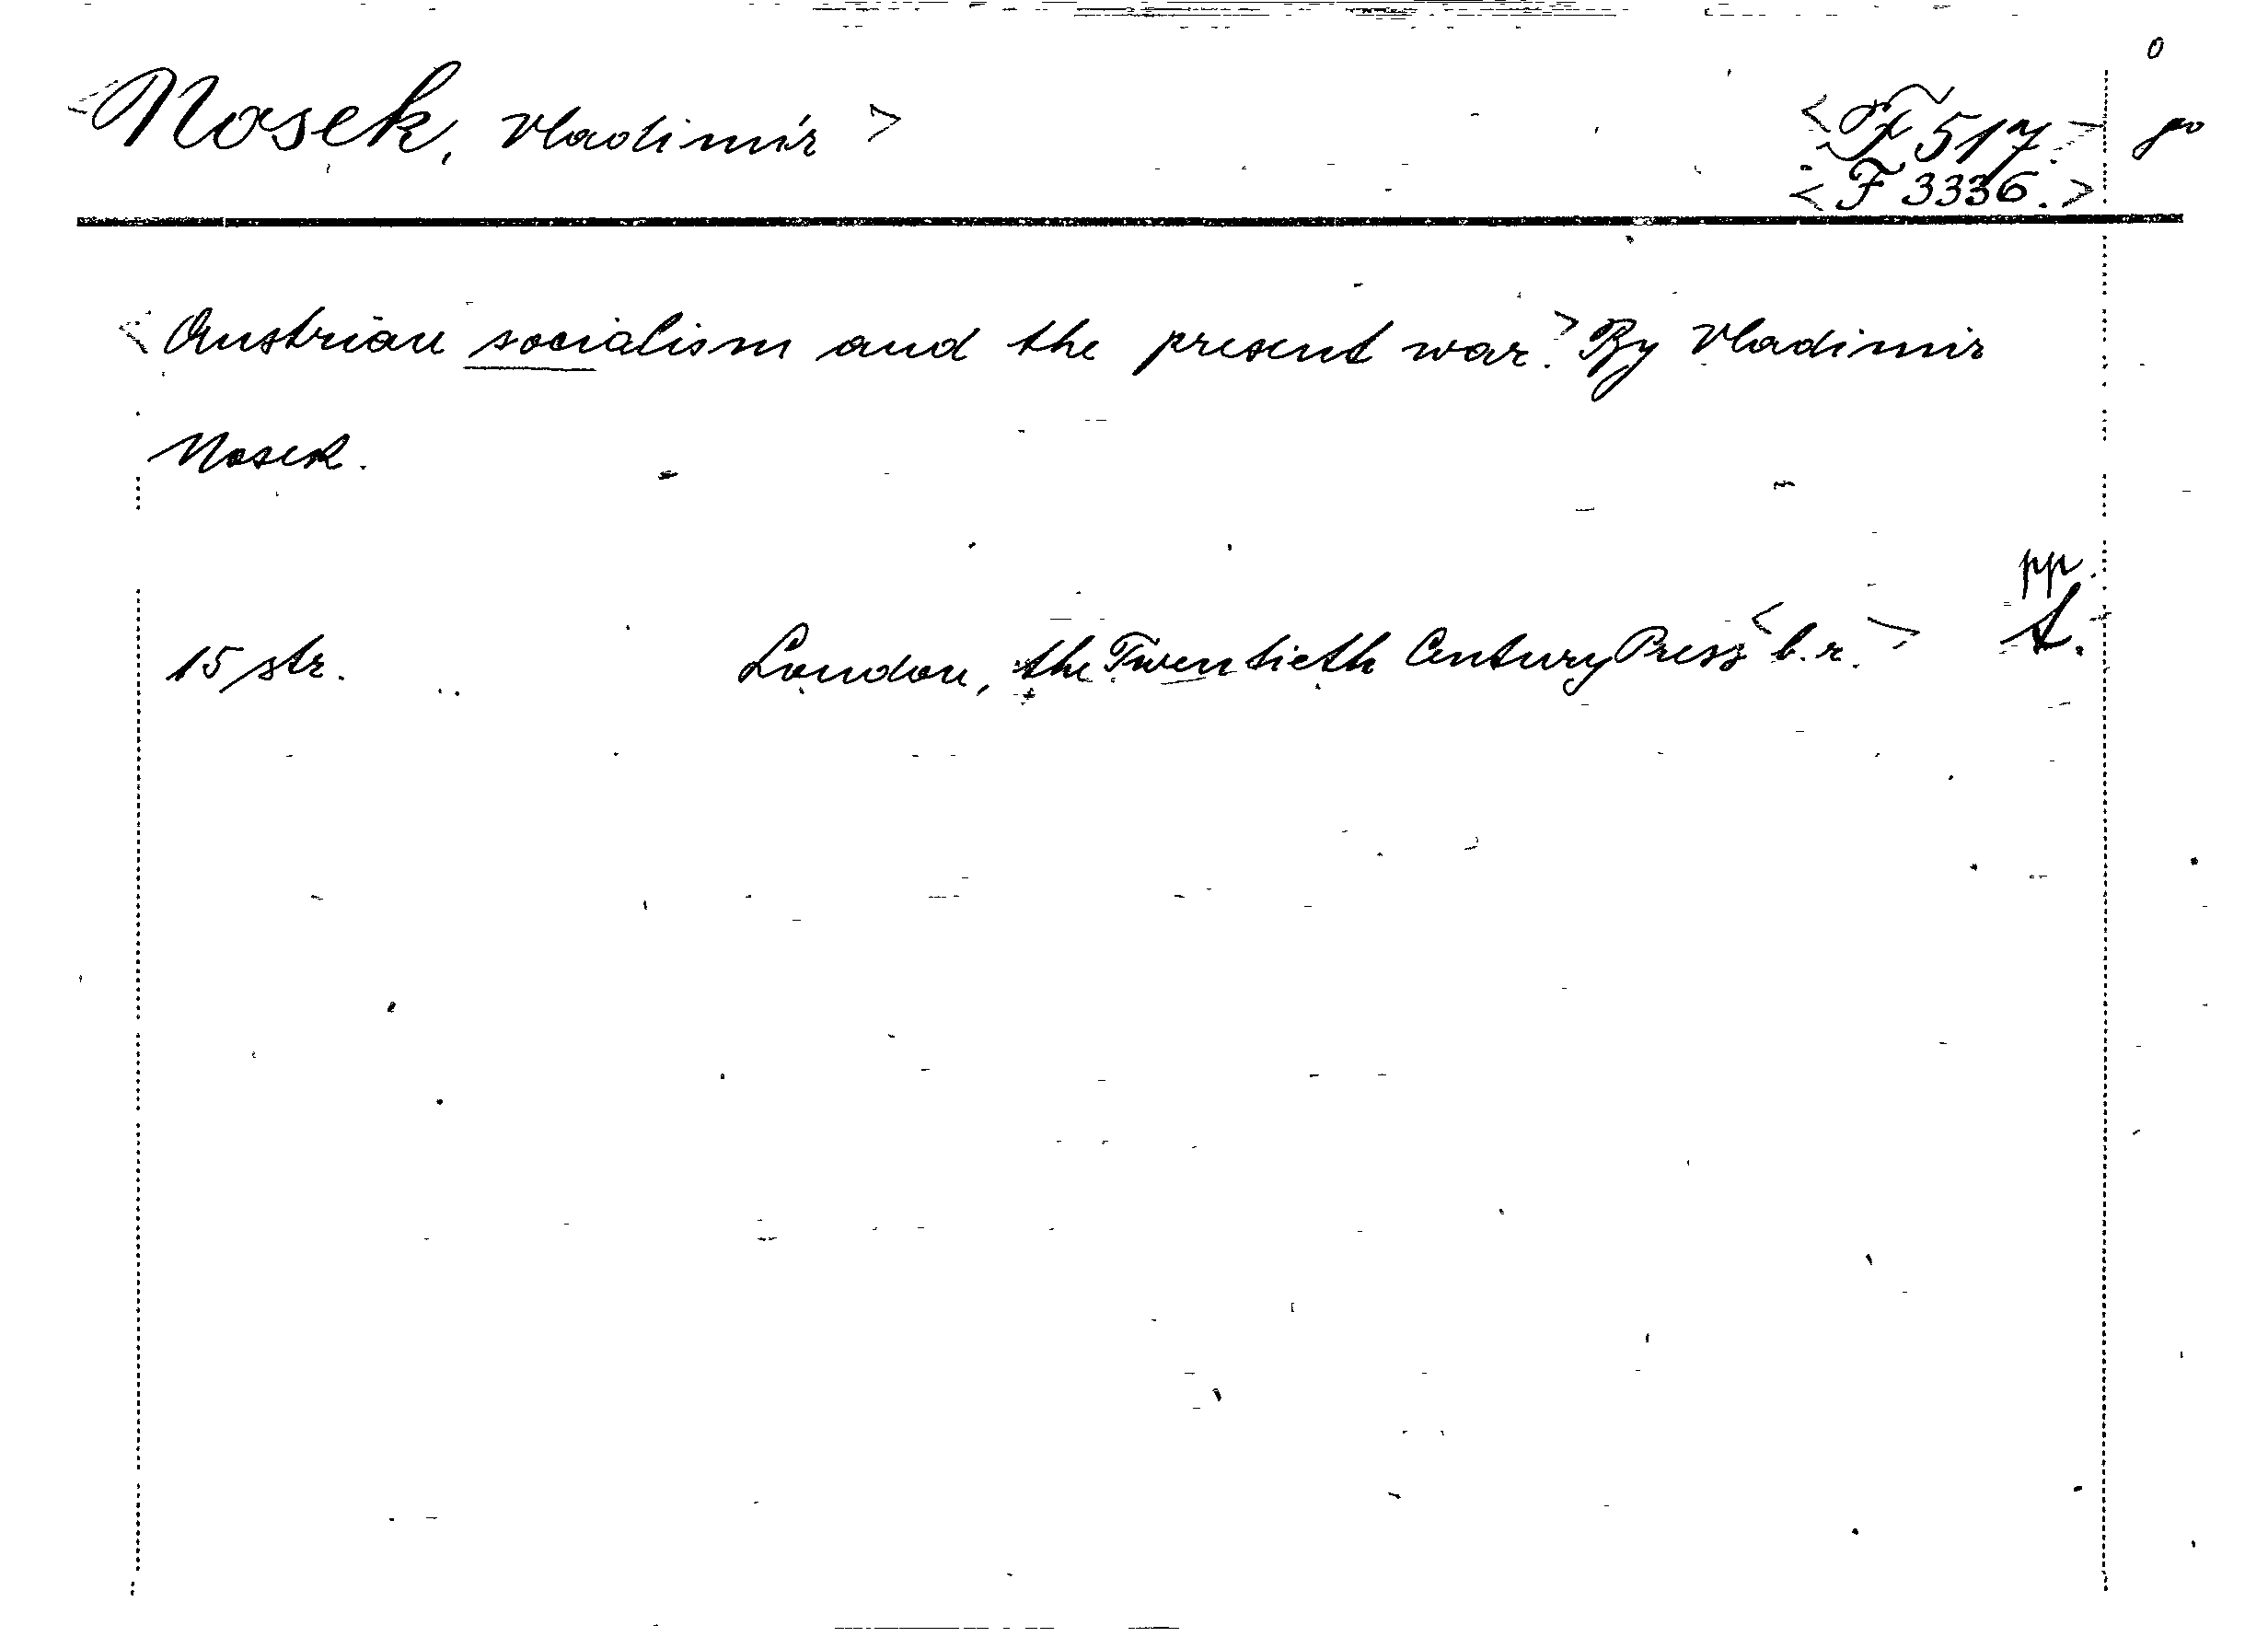 <Nosek, Vladimír> <F 517.>
<F 3336.>
<Austrian socialism and the present war.> By Vladimir
Nosek.
pp.
15 str. London, the Twentieth Century Press <b.r.>